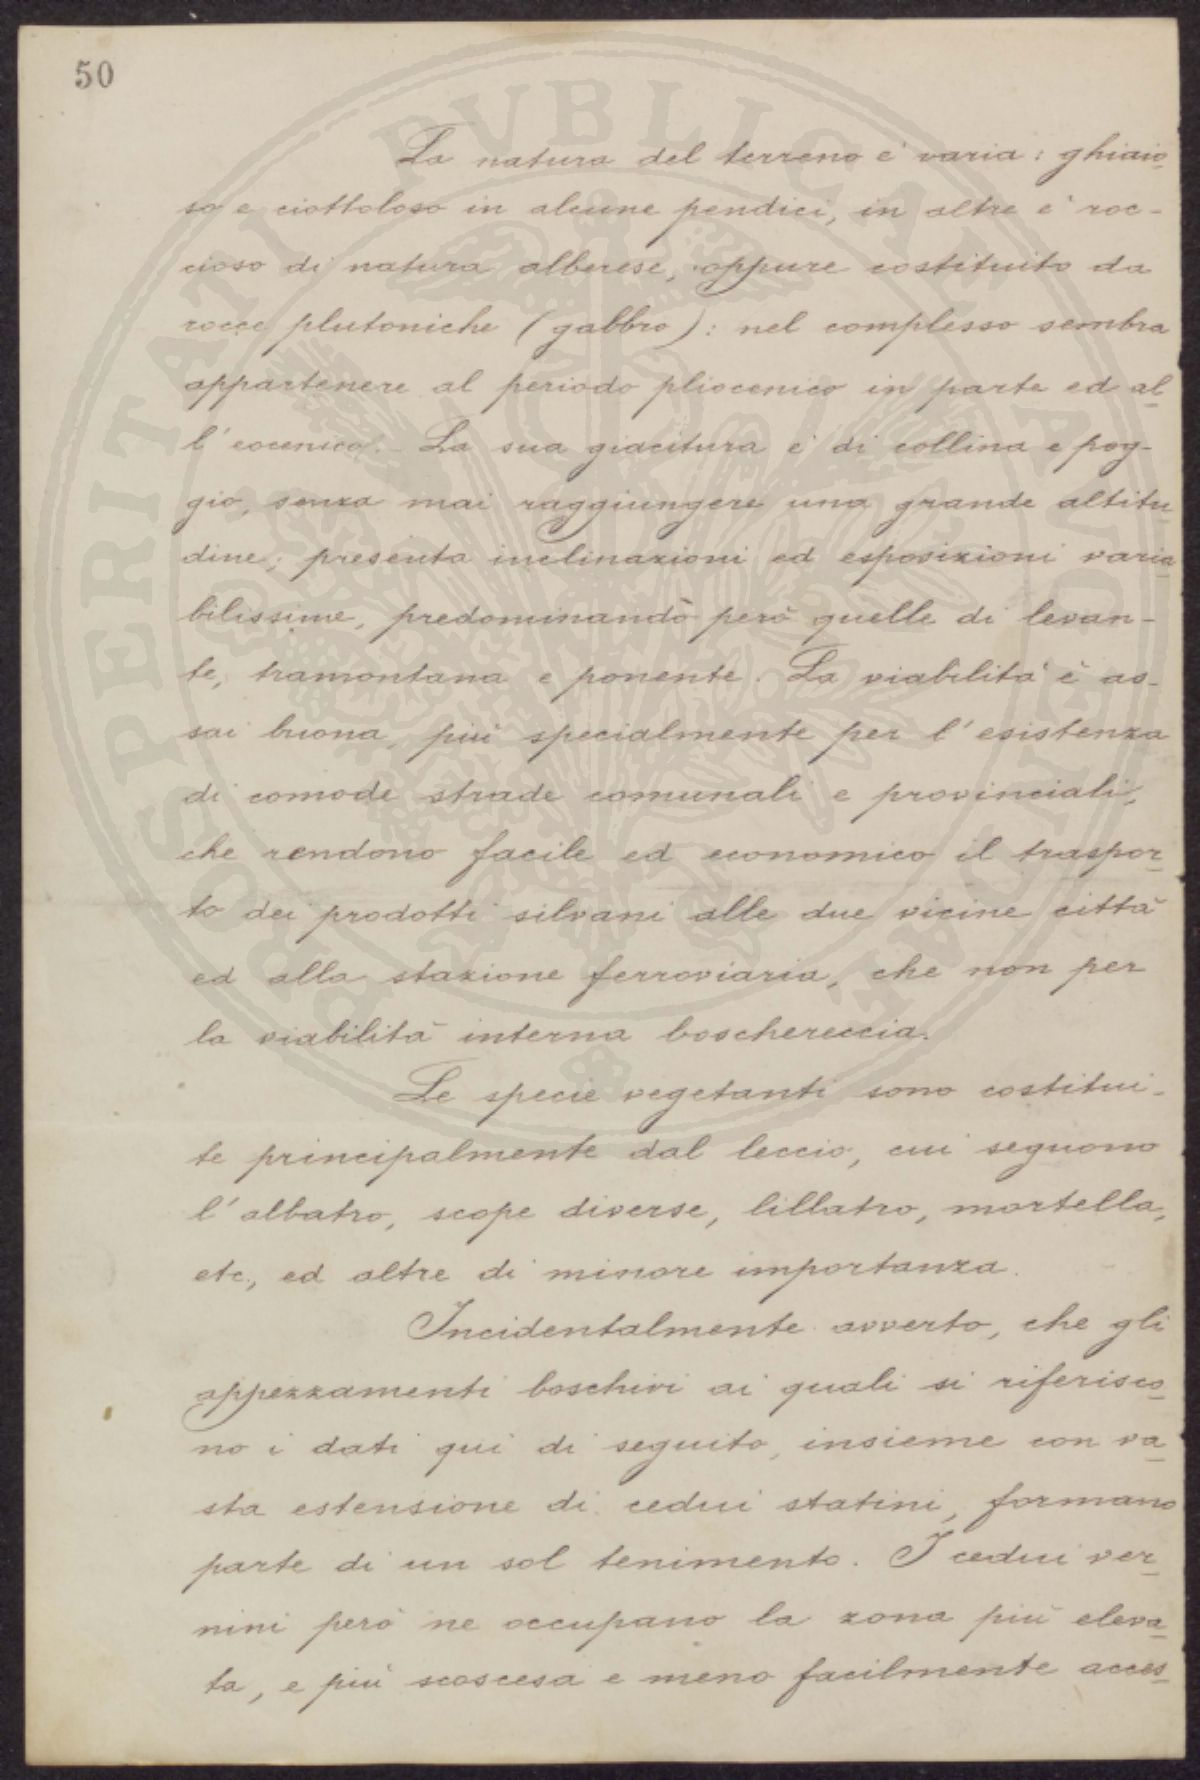 50
La natura del terreno e' varia: ghiaio-
so e ciottoloso in alcune pendici, in altre e' roc-
cioso di natura alberese, oppure costituito da
rocce plutoniche (gabbro): nel complesso sembra
appartenere al periodo pliocenico in parte ed al-
l'eocenico. La sua giacitura e' di collina e pog-
gio, senza mai raggiungere una grande altitu-
dine; presenta inclinazioni ed esposizioni varia-
bilissime, predominando però quelle di levan-
te, tramontana e ponente. La viabilità è as-
sai buona, più specialmente per l'esistenza
di comode strade comunali e provinciali,
che rendono facile ed economico il traspor-
to dei prodotti silvani alle due vicine città
ed alla stazione ferroviaria, che non per
la viabilità interna boschereccia.
Le specie vegetanti sono costitui-
te principalmente dal leccio, cui seguono
l'albatro, scope diverse, lillatro, mortella,
etc., ed altre di minore importanza.
Incidentalmente avverto, che gli
appezzamenti boschivi ai quali si riferisco-
no i dati qui di seguito, insieme con va-
sta estensione di cedui statini, formano
parte di un sol tenimento. I cedui ver-
nini però ne occupano la zona più eleva-
ta, e più scoscesa e meno facilmente acces-
PROSPERITATI PVBLICAE AVGENDAE